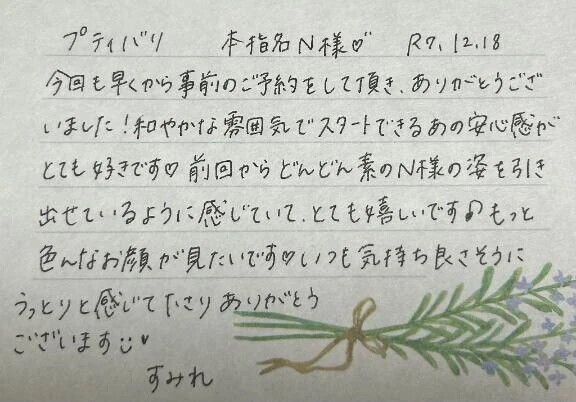 プティバリ 本指名N様♡ R7.12.18
今回も早くから事前のご予約をして頂き、ありがとうござ
いました！和やかな雰囲気でスタートできるあの安心感が
とても好きです♡前回からどんどん素のN様の姿を引き
出せているように感じていて、とても嬉しいです♪もっと
色んなお顔が見たいです♡いつも気持ち良さそうに
うっとりと感じて下さりありがとう
ございます☺♥
すみれ